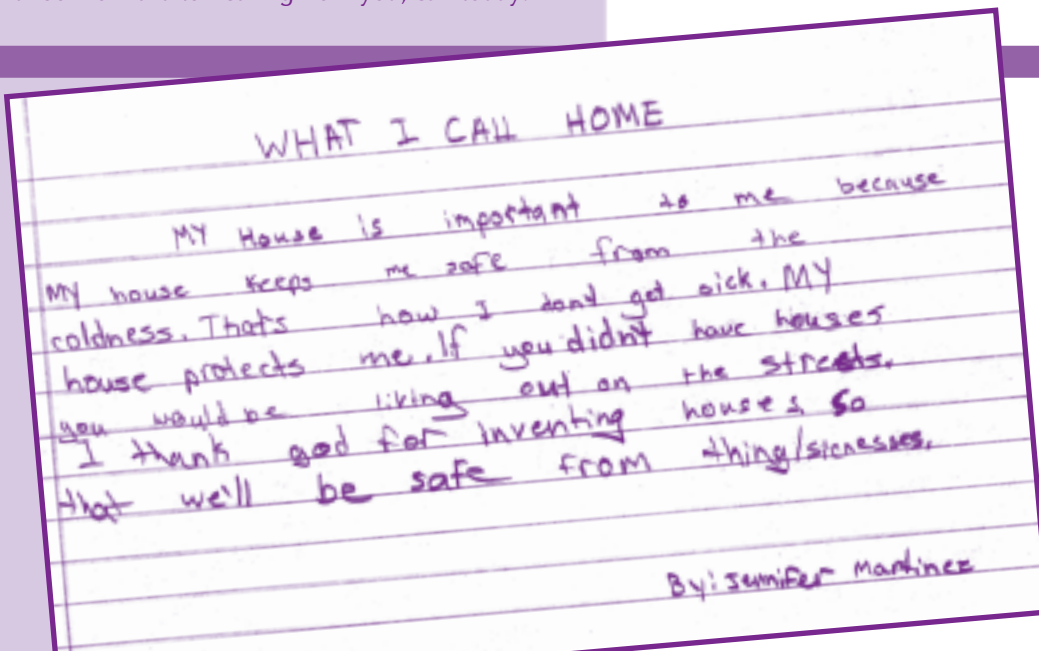 WHAT I CALL HOME
MY House is important to me because
MY house keeps me safe from the
coldness. That's how I dont get sick. MY
house protects me. If you didn't have houses
you would be living out on the streets.
I thank god for inventing houses so
that we'll be safe from thing/sicnesses.
By: Jennifer Martinez